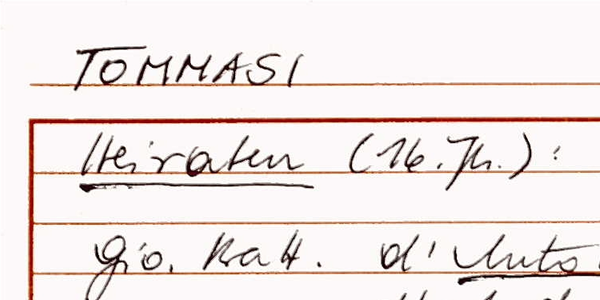 TOMMASI
Heiraten (16. Jh.):
Gio. Batt. d'Anto